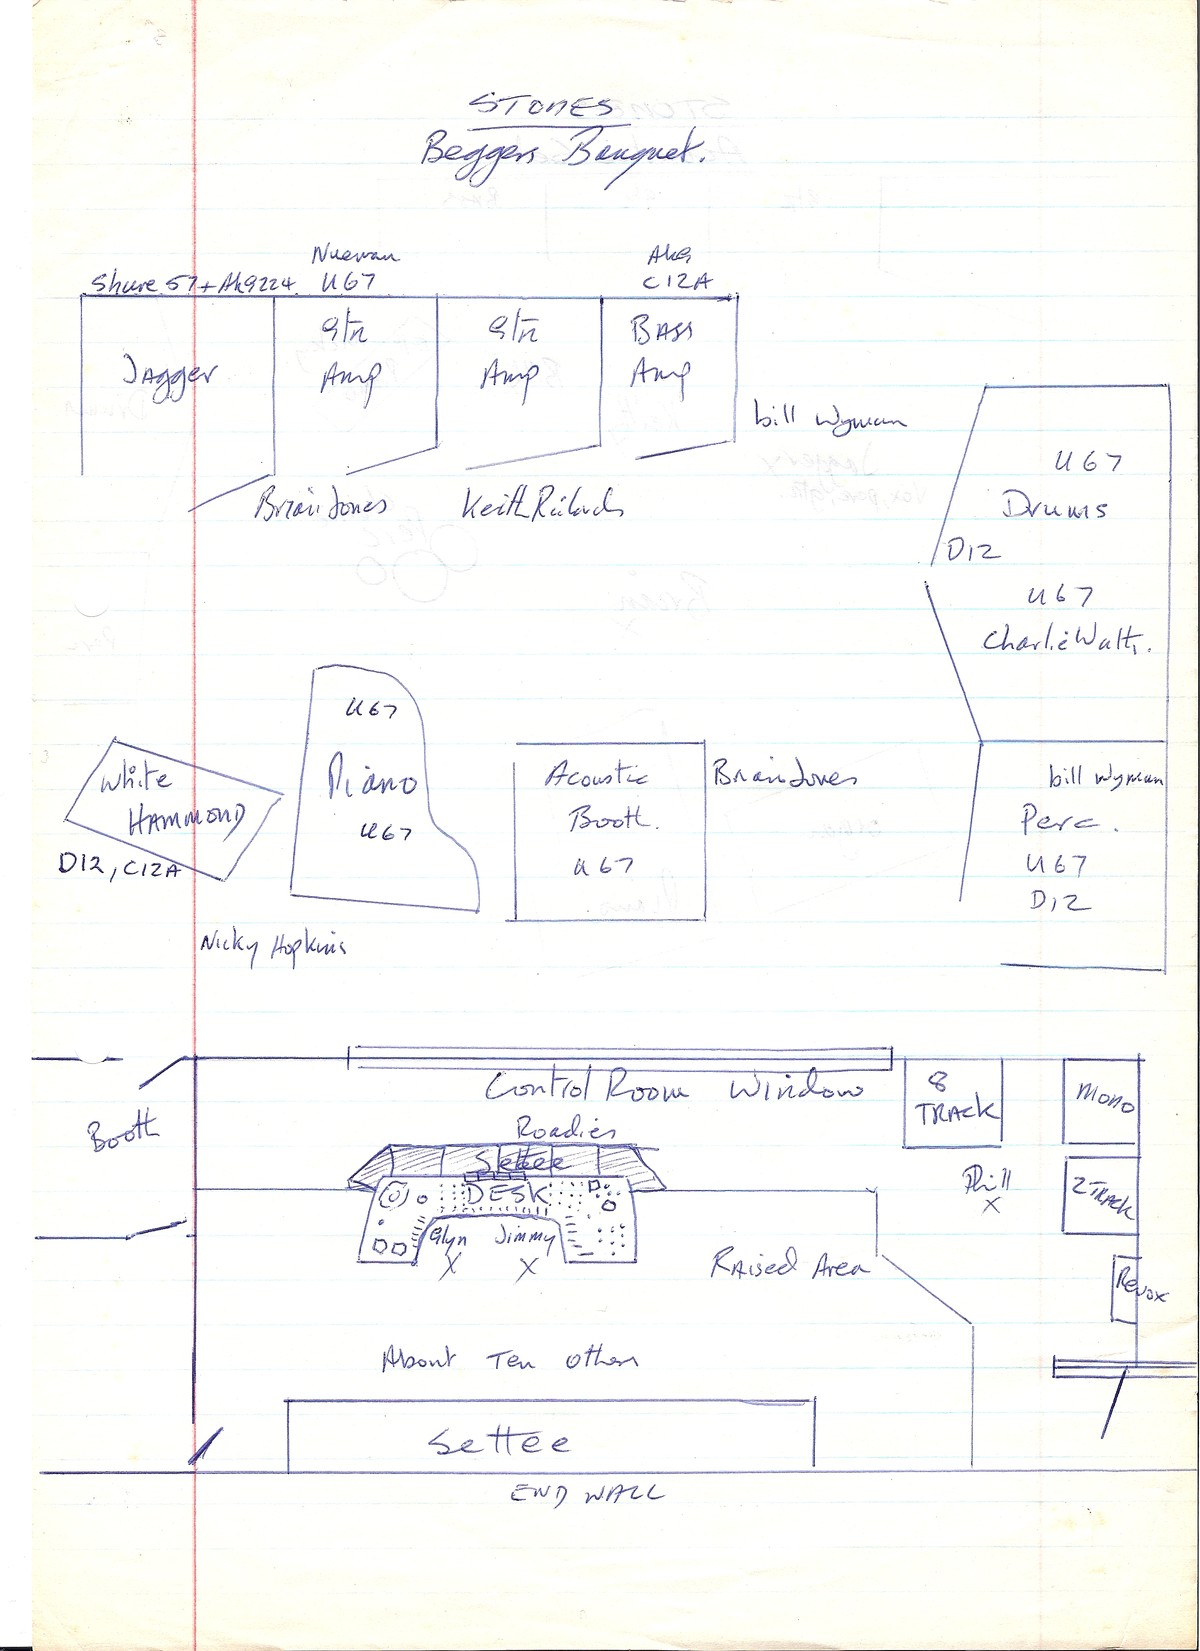 STONES
Beggers Banquet.
Shure 57 + Akg224
Nueman
U67
Akg
C12A
Jagger
Gtr
Amp
Gtr
Amp
BASS
Amp
bill Wyman
Brian Jones
Keith Richards
U67
Drums
D12
U67
Charlie Watts.
White
HAMMOND
D12, C12A
U67
Piano
U67
Nicky Hopkins
Acoustic
Booth.
U67
Brian Jones
bill Wyman
Perc.
U67
D12
Control Room Window
Booth
Roadies
Settee
DESK
Glyn
X
Jimmy
X
8
TRACK
Mono
Phill
X
2 TRACK
Revox
Raised Area
About Ten Others
Settee
END WALL